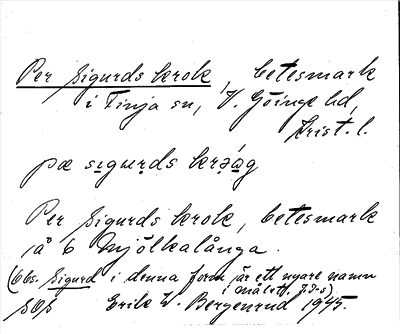 Per Sigurds krok, betesmark
i Finja sn, V. Göinge hd,
Krist. l.
pæ sigurds krǝág
Per Sigurds krok, betesmark
på 6 mjölkalånga.
(Obs. Sigurd i denna form är ett nyare namn
i målet. J.I-s)
Erik W. Bergenrud 1945.